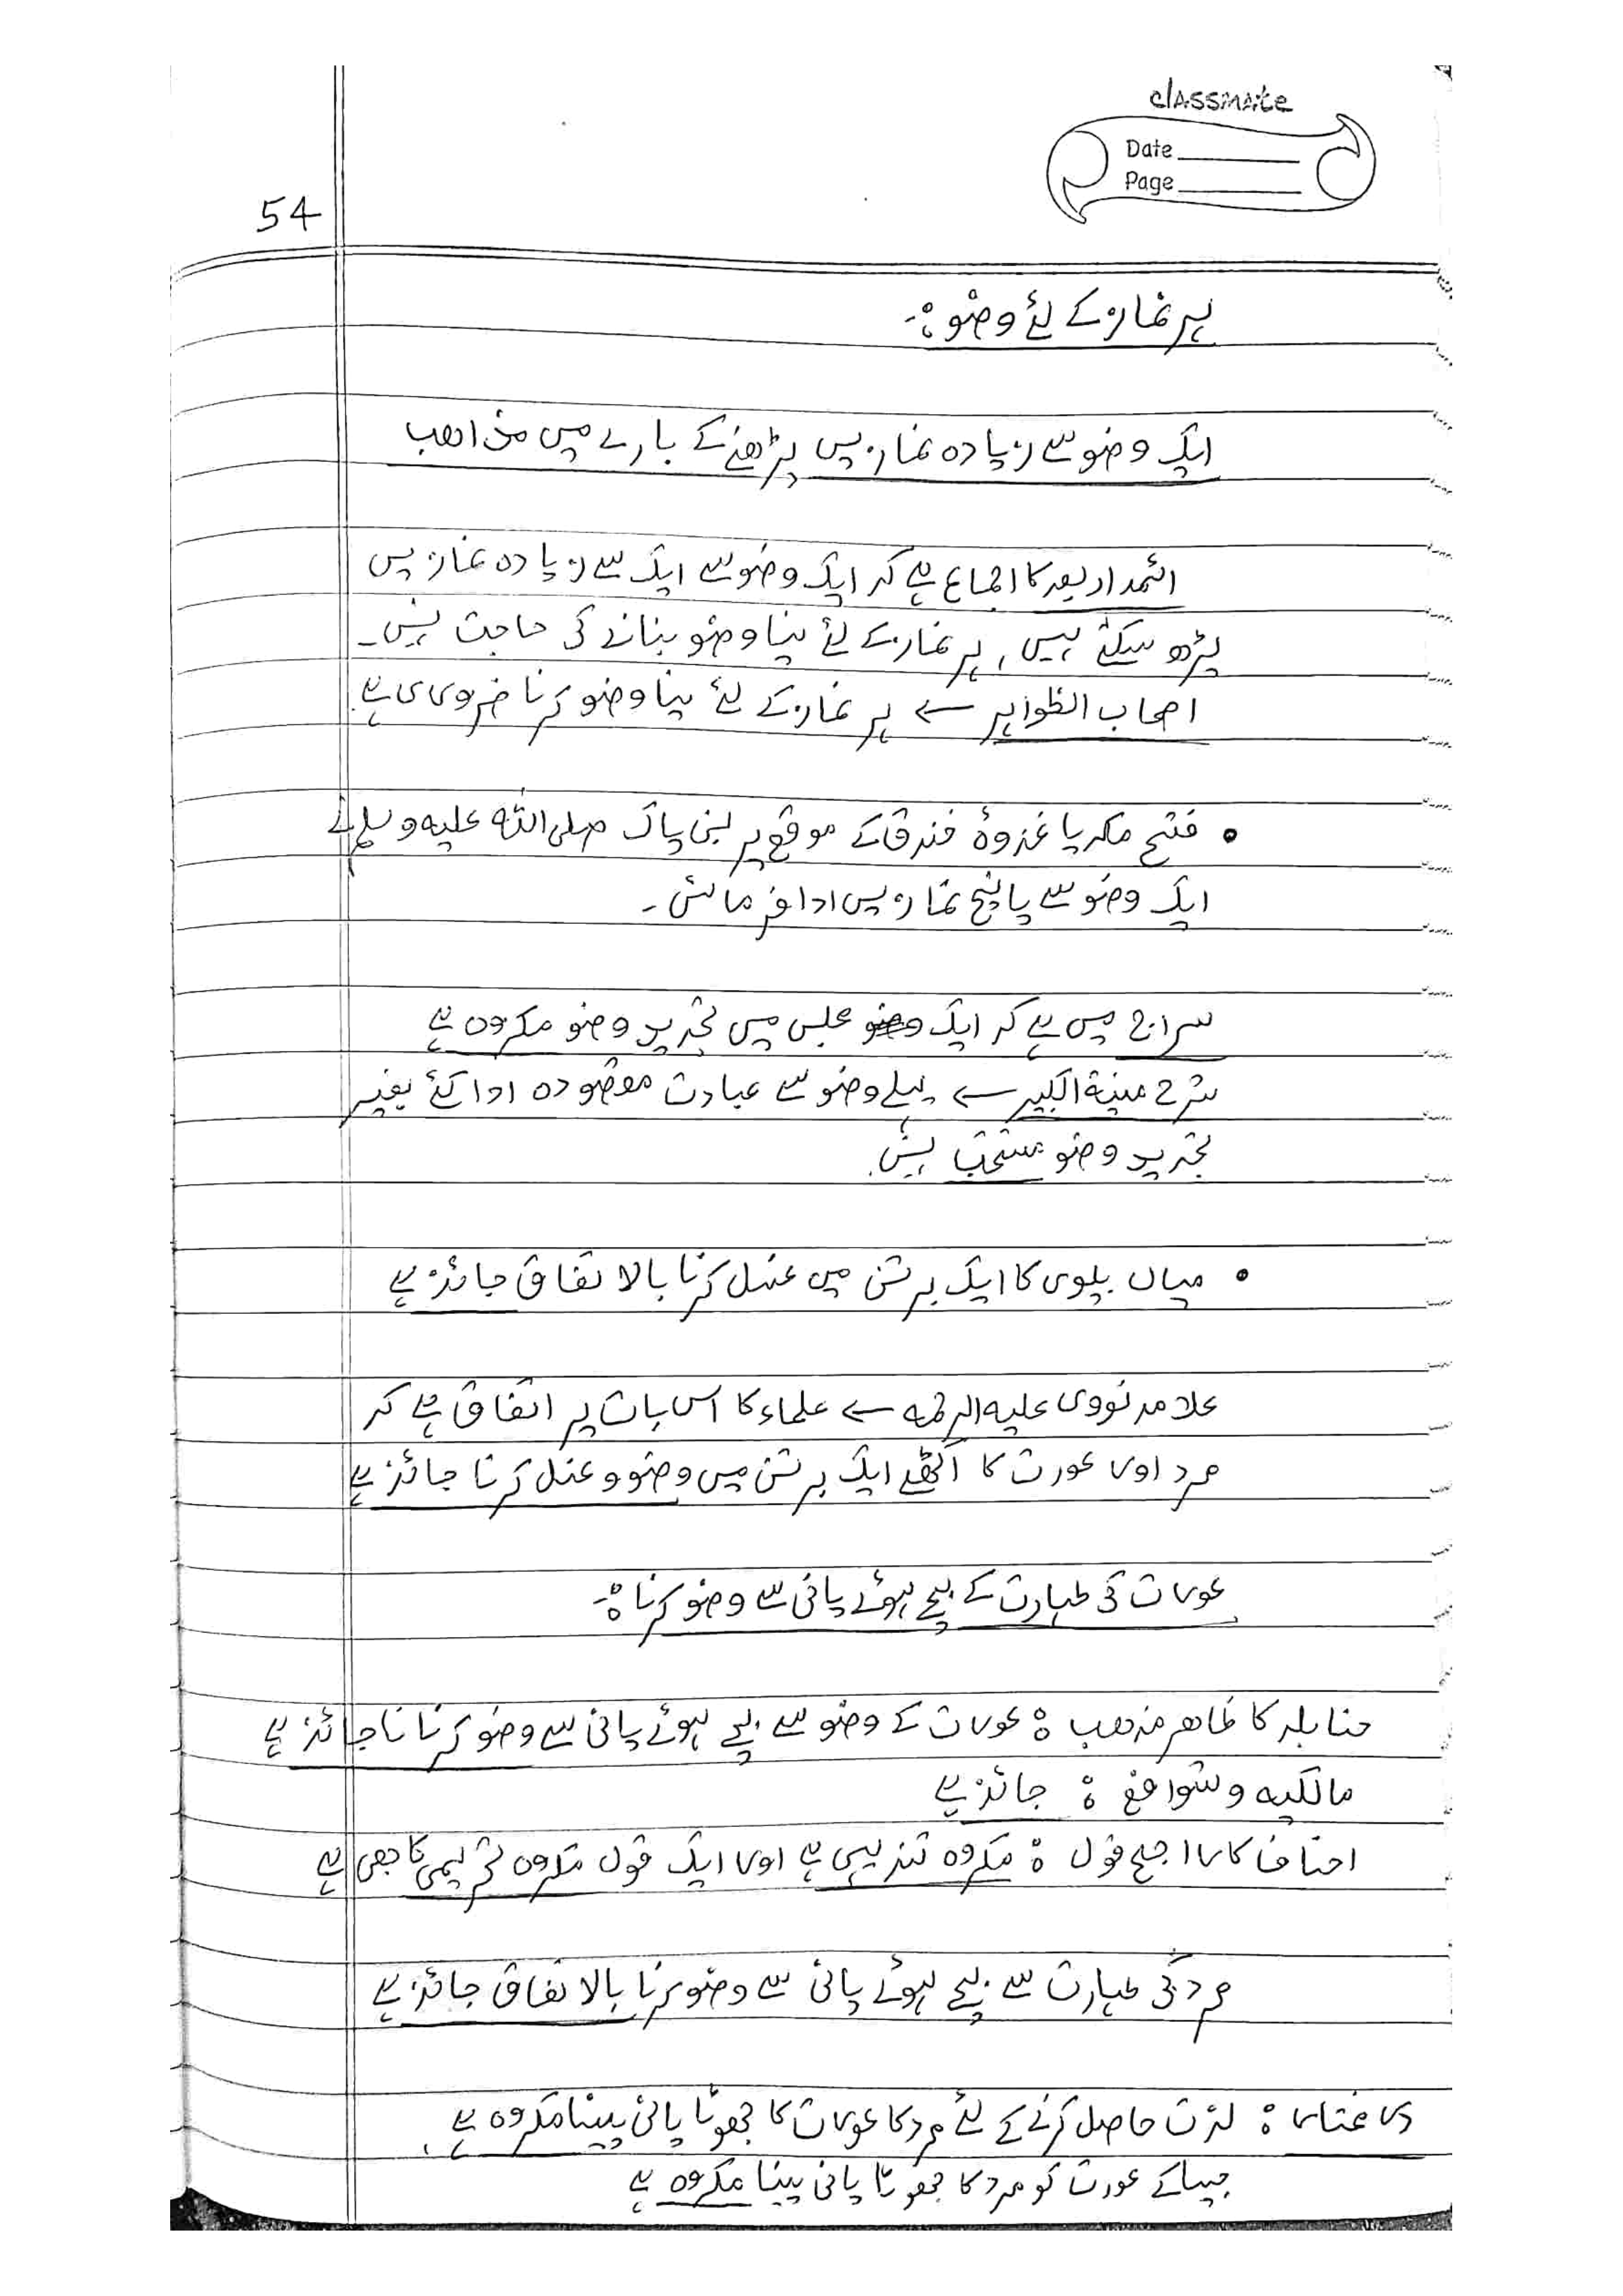 classmate
Date
Page
54
ہر نماز کے لئے وضو :-
ایک وضو سے زیادہ نمازیں پڑھنے کے بارے میں مذاھب
ائمہ اربعہ کا اجماع ہے کہ ایک وضو سے ایک سے زیادہ نمازیں
پڑھ سکتے ہیں، ہر نماز کے لئے نیا وضو بنانے کی حاجت نہیں۔
اصحاب الظواہر ← ہر نماز کے لئے نیا وضو کرنا ضروری ہے۔
• فتح مکہ یا غزوۂ خندق کے موقع پر نبی پاک صلی اللہ علیہ وسلم نے
ایک وضو سے پانچ نمازیں ادا فرمائی۔
سراج میں ہے کہ ایک مجلس میں تجدید وضو مکروہ ہے
شرح منیۃ الکبیر ← پہلے وضو سے عبادت مقصودہ ادا کئے بغیر
تجدید وضو مستحب نہیں۔
• میاں بیوی کا ایک برتن میں غسل کرنا بالاتفاق جائز ہے
علامہ نووی علیہ الرحمہ ← علماء کا اس بات پر اتفاق ہے کہ
مرد اور عورت کا اکٹھے ایک برتن میں وضو و غسل کرنا جائز ہے
عورت کی طہارت کے بچے ہوئے پانی سے وضو کرنا :-
حنابلہ کا ظاھر مذھب : عورت کے وضو سے بچے ہوئے پانی سے وضو کرنا ناجائز ہے
مالکیہ و شوافع : جائز ہے
احناف کا راجح قول : مکروہ تنزیہی ہے اور ایک قول مکروہ تحریمی کا بھی ہے
مرد کی طہارت سے بچے ہوئے پانی سے وضو کرنا بالاتفاق جائز ہے
در مختار : لذت حاصل کرنے کے لئے مرد کا عورت کا جھوٹا پانی پینا مکروہ ہے،
جیسا کے عورت کو مرد کا جھوٹا پانی پینا مکروہ ہے